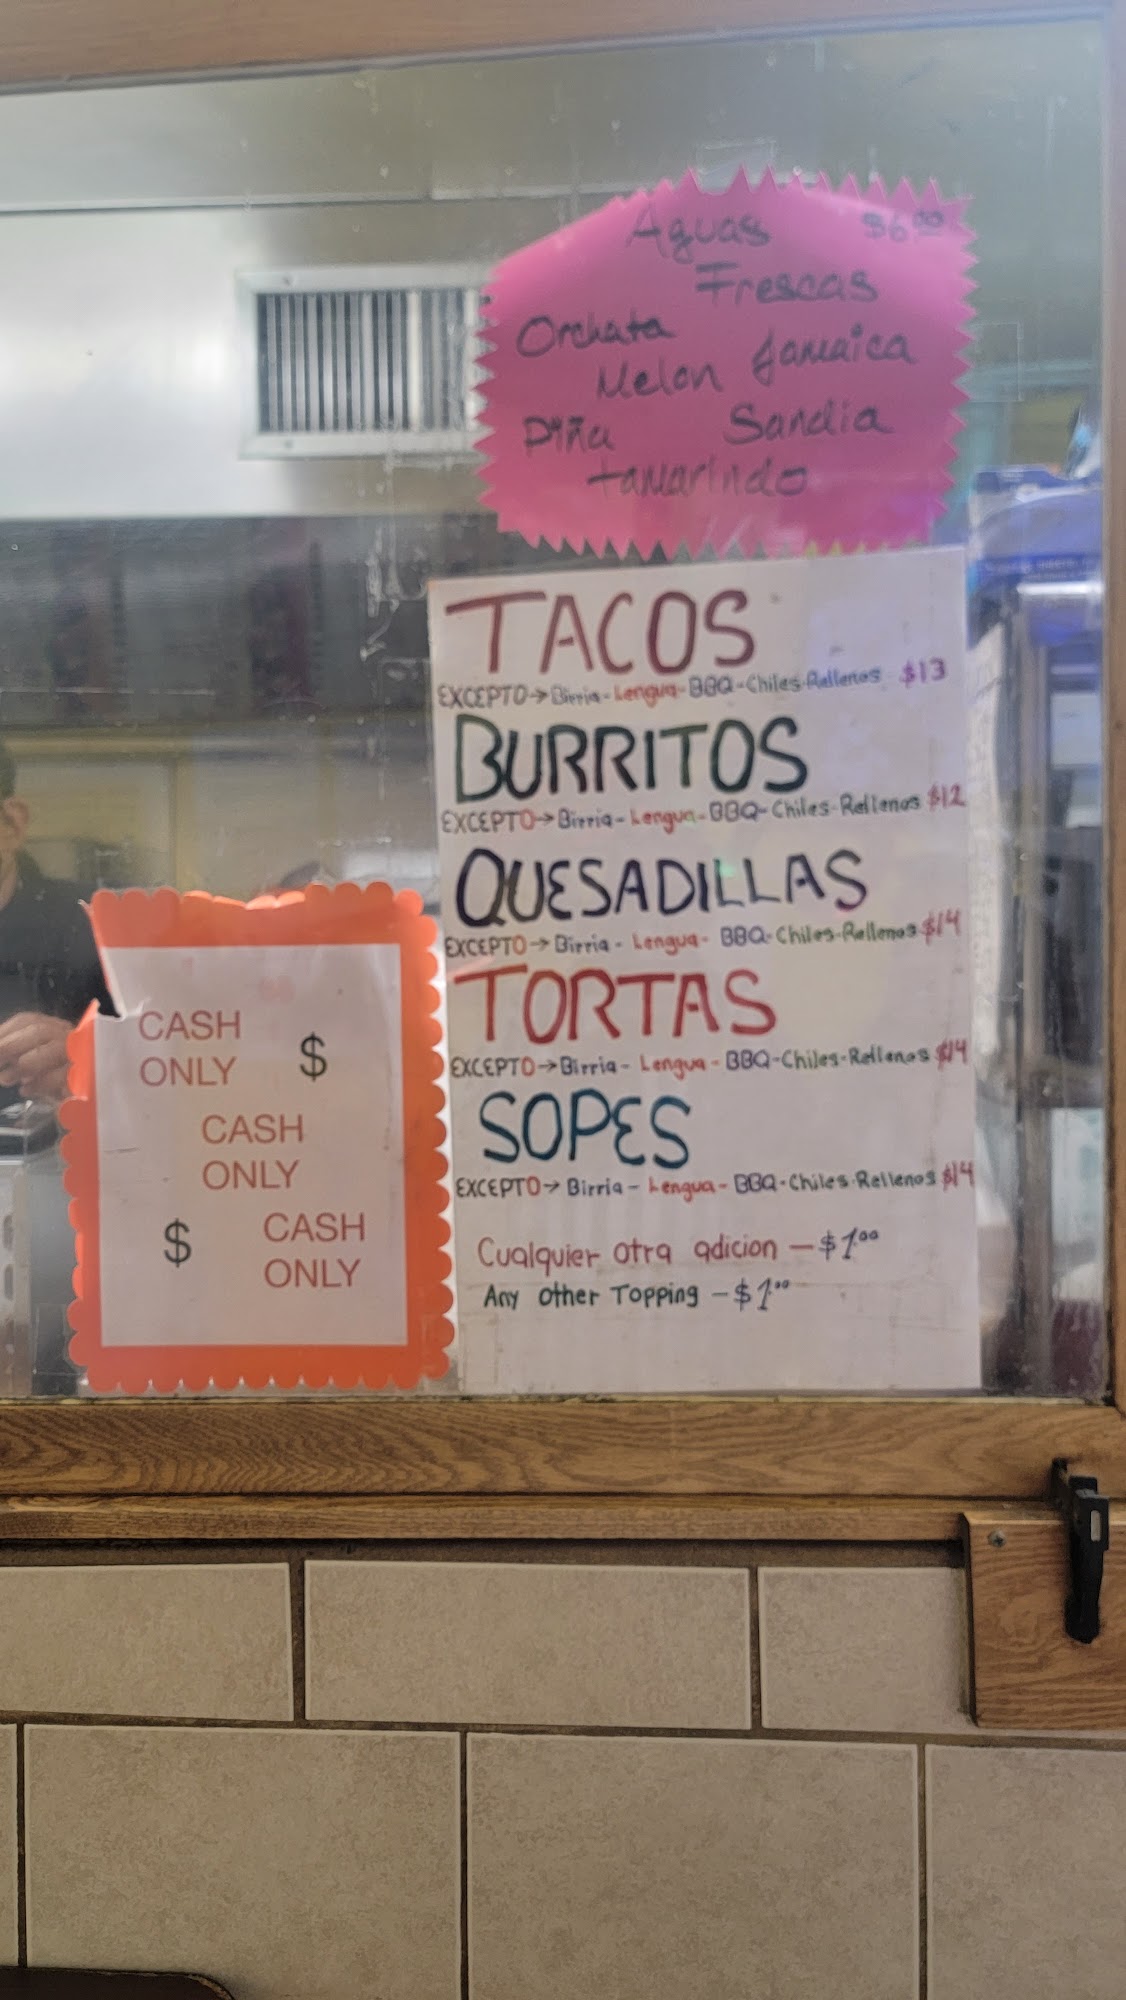 Aguas $6.00
Frescas
Orchata
Melon Jamaica
Piña Sandia
tamarindo
TACOS
EXCEPTO→Birria-Lengua-BBQ-Chiles-Rellenos $13
BURRITOS
EXCEPTO→Birria-Lengua-BBQ-Chiles-Rellenos $12
QUESADILLAS
EXCEPTO→Birria-Lengua-BBQ-Chiles-Rellenos $14
TORTAS
EXCEPTO→Birria-Lengua-BBQ-Chiles-Rellenos $14
SOPES
EXCEPTO→Birria-Lengua-BBQ-Chiles-Rellenos $14
Cualquier otra adicion — $1.00
Any other Topping — $1.00
CASH
ONLY $
CASH
ONLY
$ CASH
ONLY